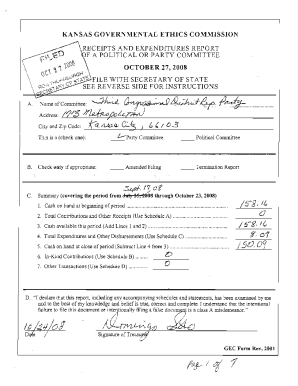 KANSAS GOVERNMENTAL ETHICS COMMISSION
RECEIPTS AND EXPENDITURES REPORT
OF A POLITICAL OR PARTY COMMITTEE
OCTOBER 27, 2008
FILE WITH SECRETARY OF STATE
SEE REVERSE SIDE FOR INSTRUCTIONS
FILED
OCT 27 2008
SECRETARY OF STATE
A. Name of Committee: Third Congressional District Rep. Party
Address: Metropolitan
City and Zip Code: Kansas City, 66103
This is a (check one): Party Committee Political Committee
B. Check only if appropriate: Amended Filing Termination Report
Sept. 17, 08
C. Summary (covering the period from through October 23, 2008)
1. Cash on hand at beginning of period 158.16
2. Total Contributions and Other Receipts (Use Schedule A) 0
3. Cash available this period (Add Lines 1 and 2) 158.16
4. Total Expenditures and Other Disbursements (Use Schedule C) 8.07
5. Cash on hand at close of period (Subtract Line 4 from 3) 150.09
6. In-Kind Contributions (Use Schedule B) 0
7. Other Transactions (Use Schedule D) 0
D. "I declare that this report, including any accompanying schedules and statements, has been examined by me
and to the best of my knowledge and belief is true, correct and complete. I understand that the intentional
failure to file this document or intentionally filing a false document is a Class A misdemeanor."
10/24/08 Domingo Soto
Date Signature of Treasurer
GEC Form Rev. 2001
Page 1 of 7